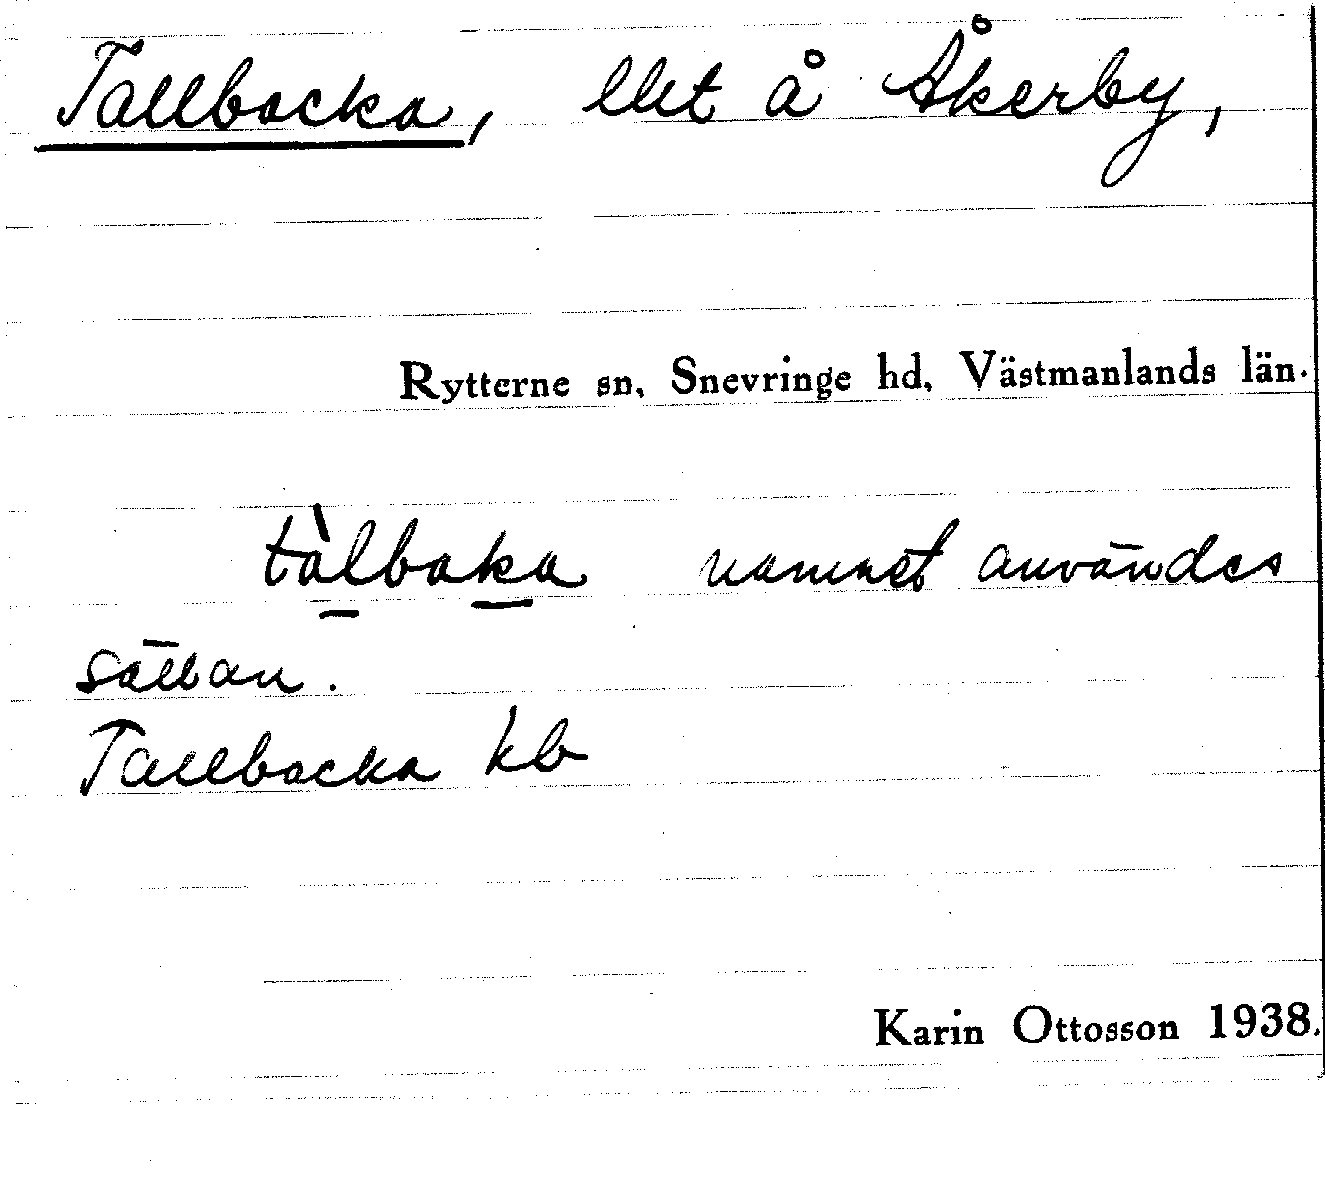 Tallbacka, llht å Åkerby,
Rytterne sn, Snevringe hd, Västmanlands län.
tàlbaka namnet användes
sällan.
Tallbacka kb
Karin Ottosson 1938.